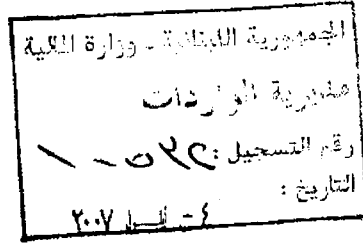 الجمهورية اللبنانية - وزارة المالية
مديرية الواردات
رقم التسجيل :
التاريخ :
٤ - ٢٠٠٧